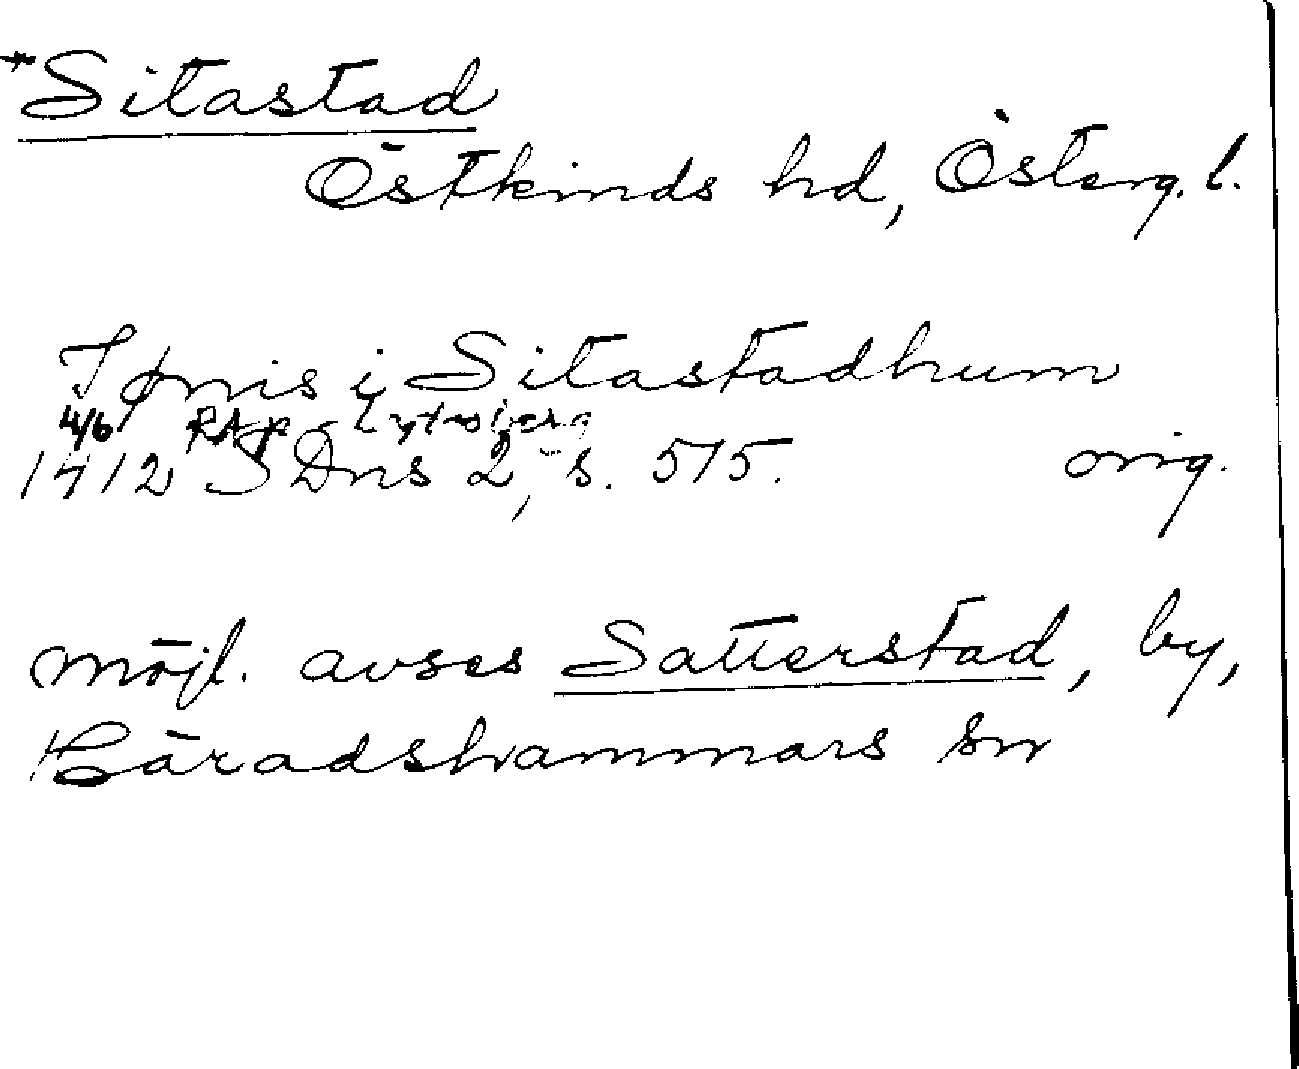 *Sitastad
Östkinds hd, Österg. l.
Jønis i Sitastadhum
4/6 RAp
1412 SDns 2, s. 515. orig.
möjl. avses Satterstad, by,
Häradshammars sn